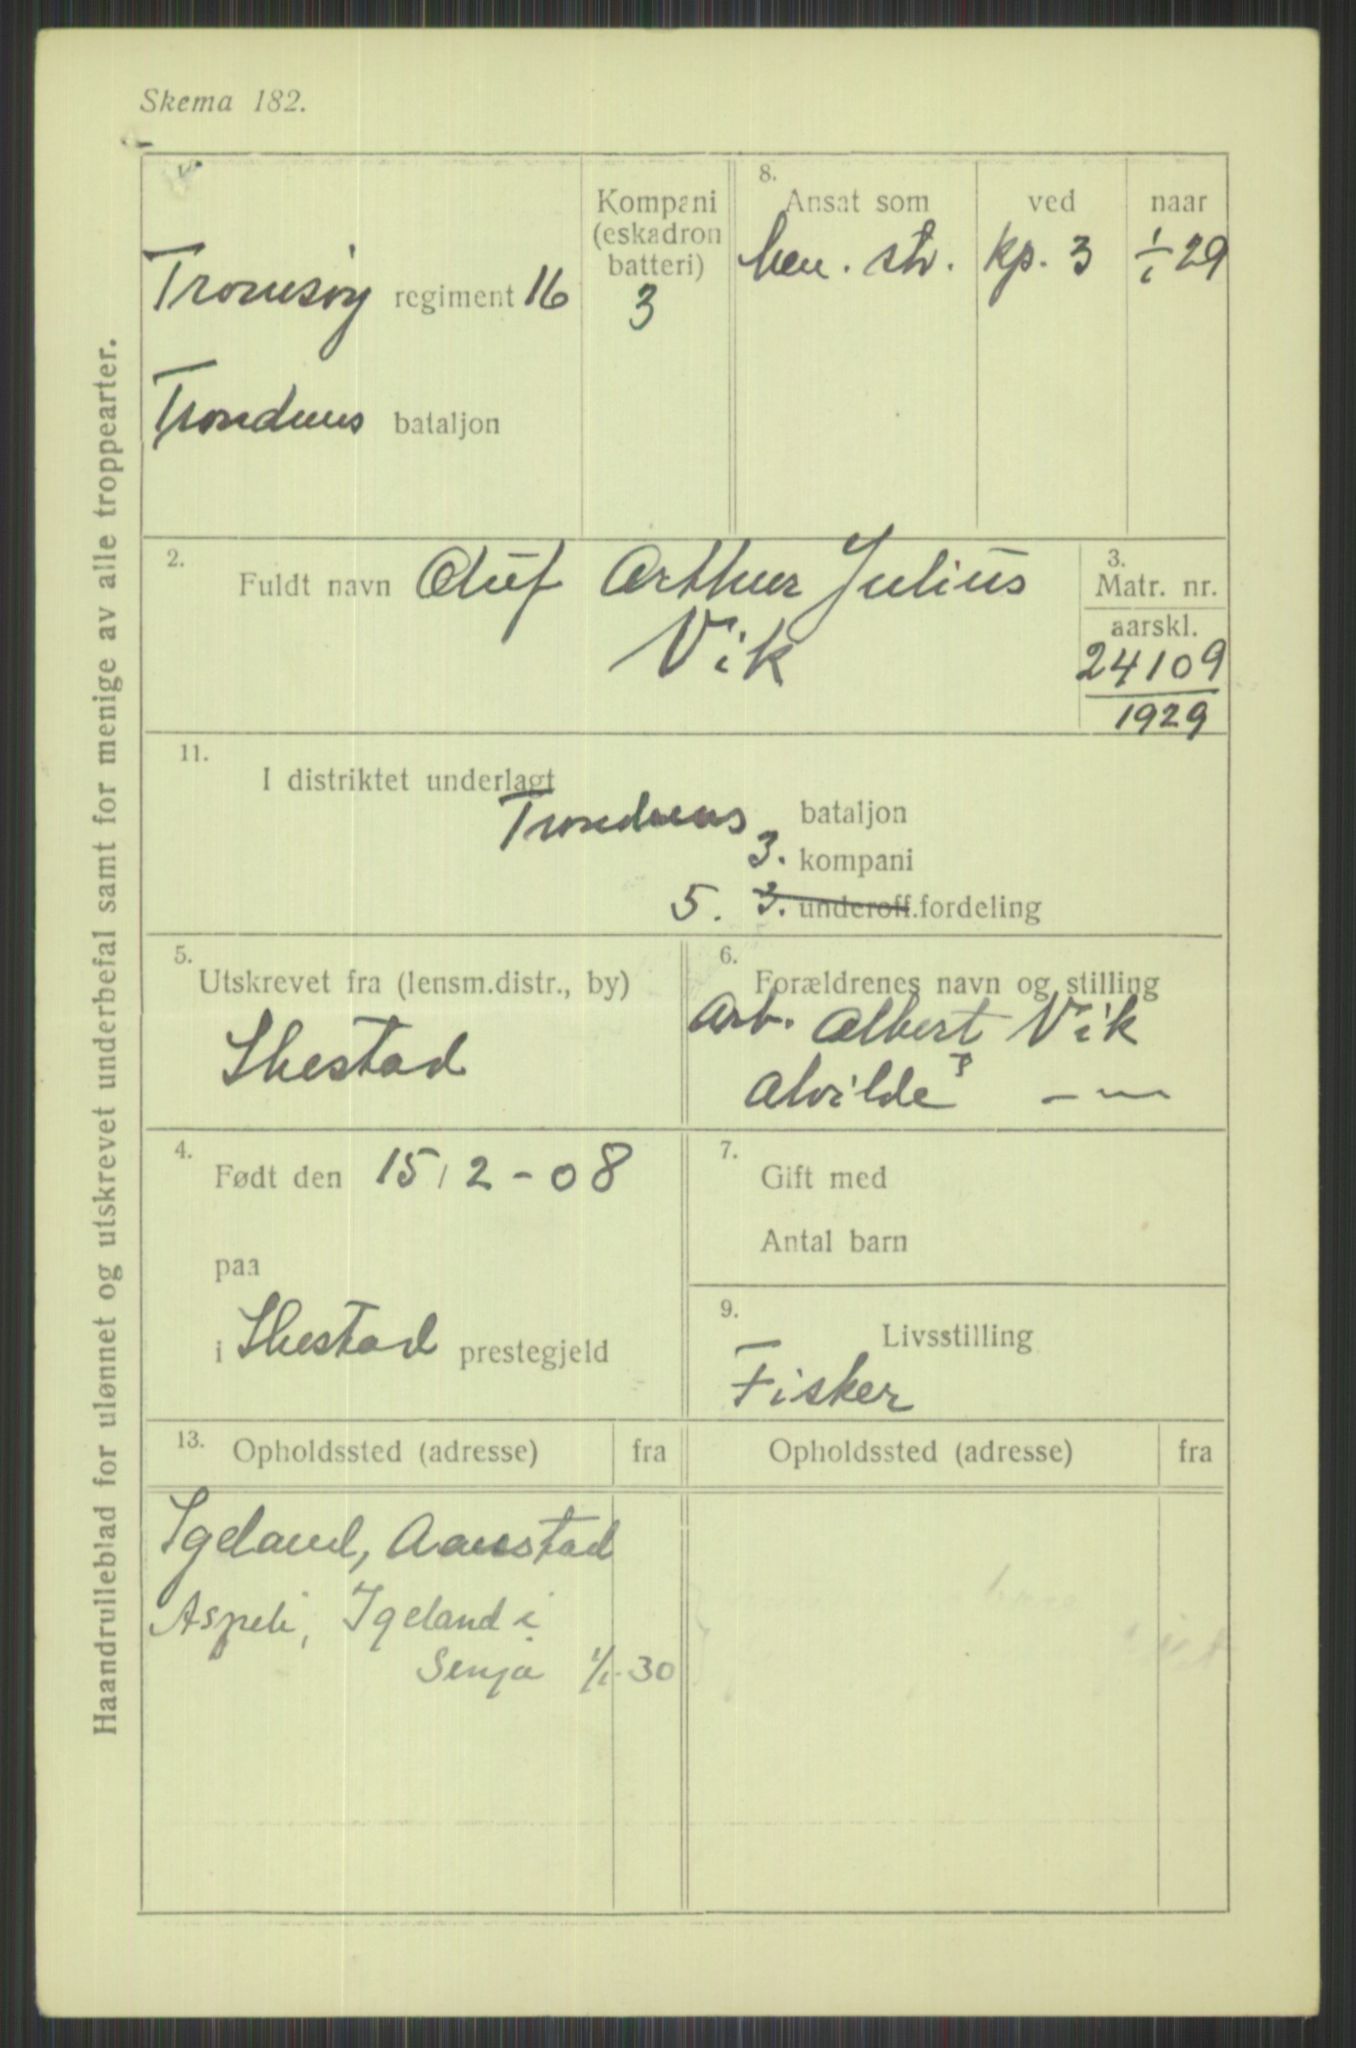 Skema 182.
Haandrulleblad for ulønnet og utskrevet underbefal samt for menige av alle troppearter.
Tromsøy regiment 16
Kompani (eskadron batteri)
3
Trondenes bataljon
8.
Ansat som ved naar
kp. 3 1/1 29
2.
Fuldt navn Oluf Arthur Julius
Vik
3.
Matr. nr.
aarskl.
24109
1929
11.
I distriktet underlagt
Trondenes bataljon
3. kompani
5. 3. underoff.fordeling
5.
Utskrevet fra (lensm.distr., by)
Ibestad
6.
Forældrenes navn og stilling
Arb. Albert Vik
Alvilde P — 〃 —
4.
Født den 15/2-08
paa
i Ibestad prestegjeld
7.
Gift med
Antal barn
9.
Livsstilling
Fisker
13. Opholdssted (adresse) fra Opholdssted (adresse) fra
Igeland, Aanstad
Aspeli, Igeland i
Senja 1/1-30